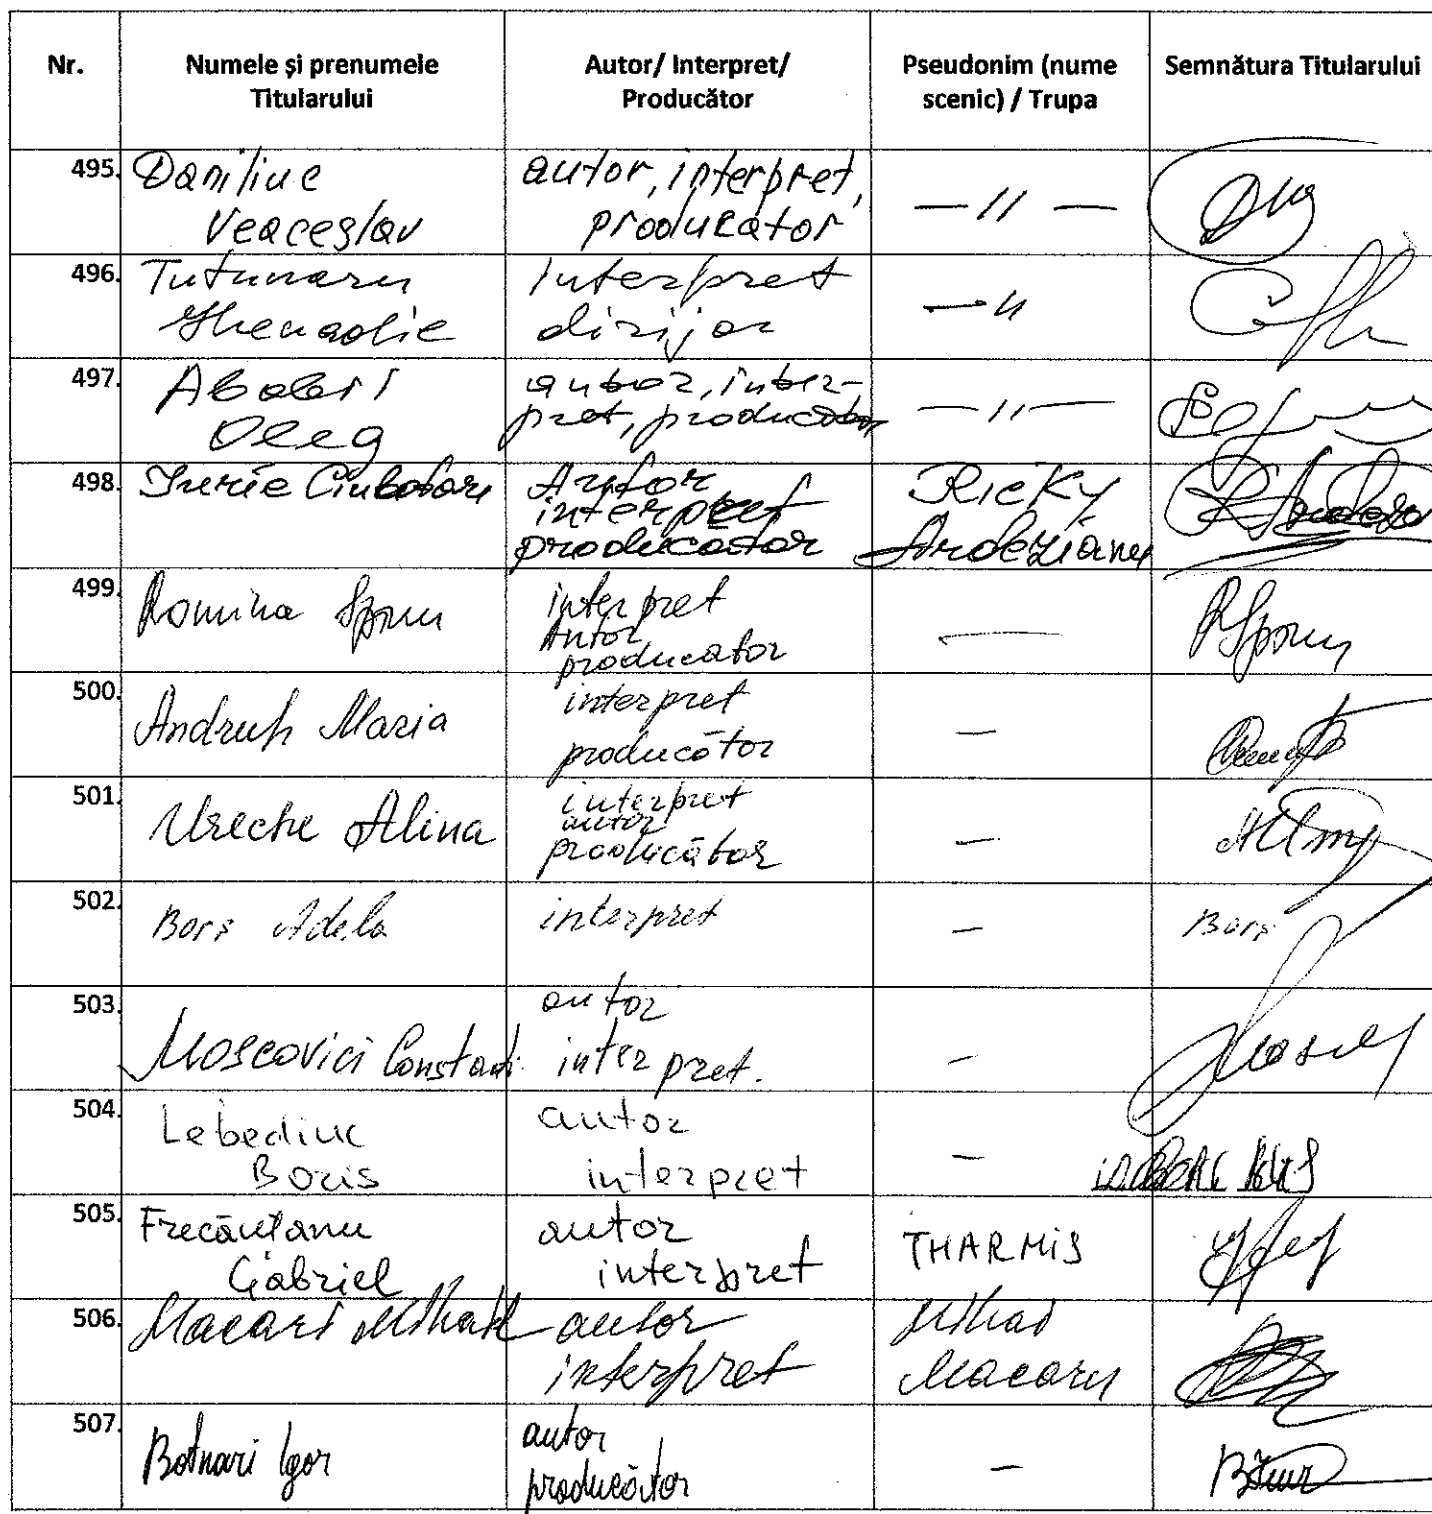 Nr. Numele și prenumele Titularului Autor/ Interpret/ Producător Pseudonim (nume scenic) / Trupa Semnătura Titularului
495. Daniliuc Veaceslav autor, interpret, producator — // —
496. Tutunaru Ghenadie interpret dirijor — //
497. Abalari Oleg autor, inter-pret, producator — // —
498. Ciubotaru Autor interpret producator Ricky Ardezianu
499. Romina Spînu interpret Autor producator —
500. Andruh Maria interpret producător —
501. Ureche Alina interpret autor producător —
502. Borș Adela interpret — Borș
503. Moscovici Constanti autor interpret. —
504. Lebediuc Boris autor interpret —
505. Frecăuțanu Gabriel autor interpret THARMIS
506. Macari Mihail autor interpret Mihai Macaru
507. Botnari Igor autor producător —